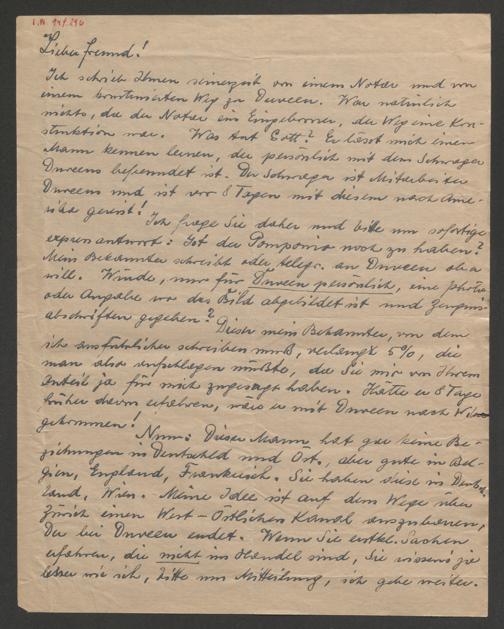 I.N. 194.290
Lieber Freund!
Ich schrieb Ihnen seinerzeit von einem Notar und von
einem konstruierten Weg zu Duveen. War natürlich
nichts, da der Notar ein Eingeborener, der Weg eine Kon-
struktion war. Was tut Gott? Er lässt mich einen
Mann kennen lernen, der persönlich mit dem Schwager
Duveens befreundet ist. Der Schwager ist Mitarbeiter
Duveens und ist vor 8 Tagen mit diesem nach Ame-
rika gereist!
Ich frage Sie daher und bitte um sofortige
expressantwort: Ist der Pomponio noch zu haben?
Mein Bekannter schreibt oder telegr. an Duveen ob er
will. Würde, nur für Duveen persönlich, eine photo
oder Angabe wo das Bild abgebildet ist und Zeugnis-
abschriften gegeben?
Dieser mein Bekannter, von dem
ich ausführlicher schreiben muß, verlangt 5%, die
man also aufschlagen müßte, da Sie mir von Ihrem
Anteil ja für mich zugesagt haben. Hätte er 8 Tage
früher davon erfahren, wäre er mit Duveen nach
gekommen!
Nun: Dieser Mann hat gar keine Be-
ziehungen in Deutschld und Öst., aber gute in Bel-
gien, England, Frankreich. Sie haben diese in Deutsch-
land, Wien. Meine Idee ist auf dem Wege über
Zürich einen West-Östlichen Kanal auszubauen,
der bei Duveen endet. Wenn Sie erstkl. Sachen
erfahren, die nicht im Handel sind, Sie wissen's ja
besser wie ich, bitte um Mitteilung, ich gebe weiter.